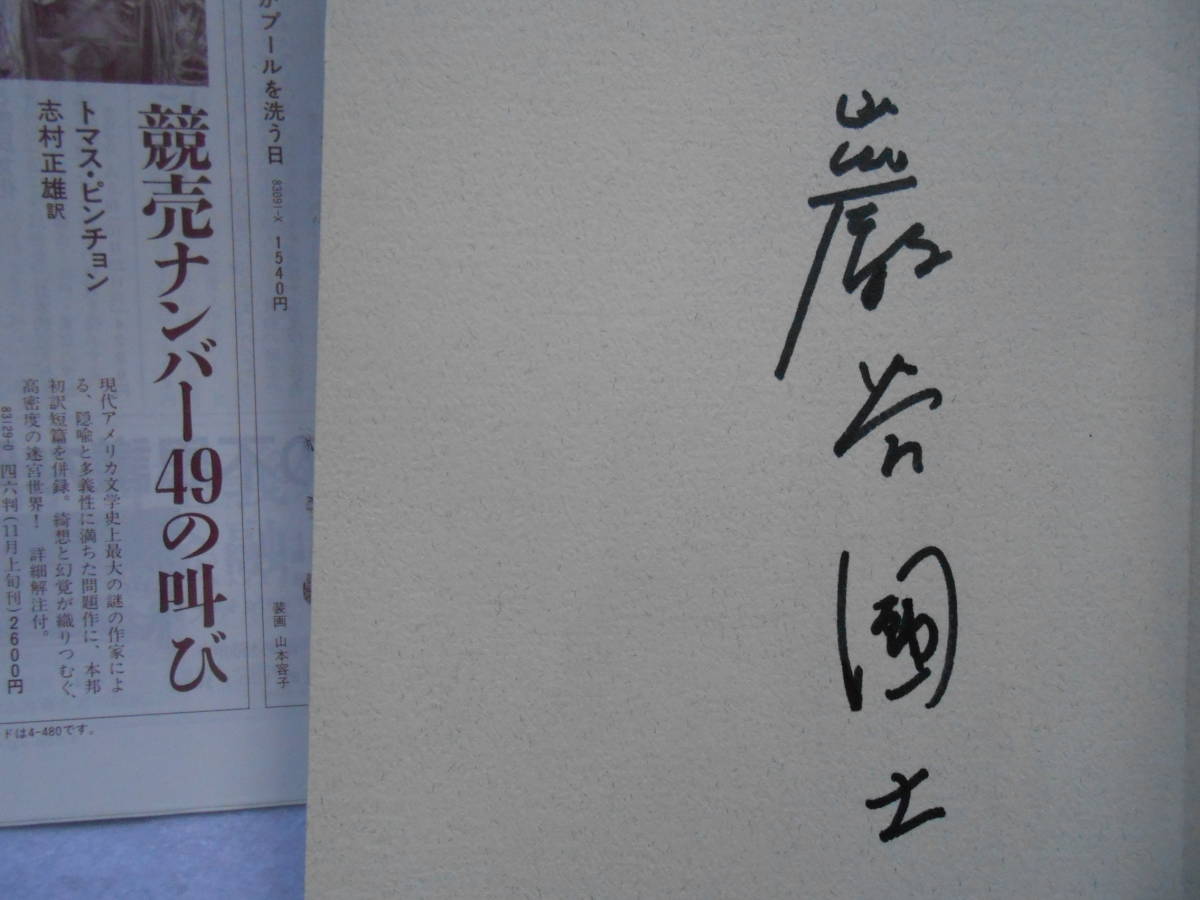 巖谷國士
がプールを洗う日
83091-X 1540円
装画 山本容子
競売ナンバー49の叫び
トマス・ピンチョン
志村正雄訳
現代アメリカ文学史上最大の謎の作家によ
る、隠喩と多義性に満ちた問題作に、本邦
初訳短篇を併録。綺想と幻覚が織りつむぐ、
高密度の迷宮世界! 詳細解注付。
83129-0 四六判(11月上旬刊)2600円
ドは4-480です。